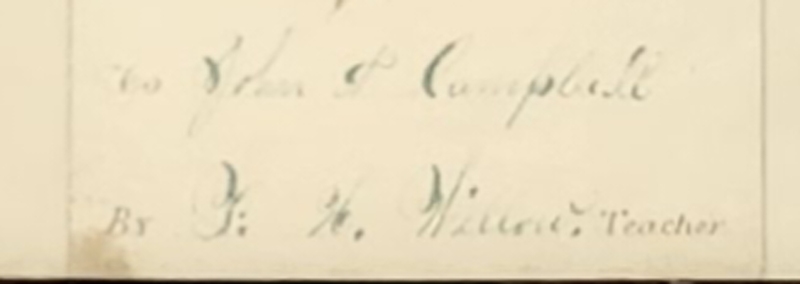 To John P Campbell
By F. H. Teacher